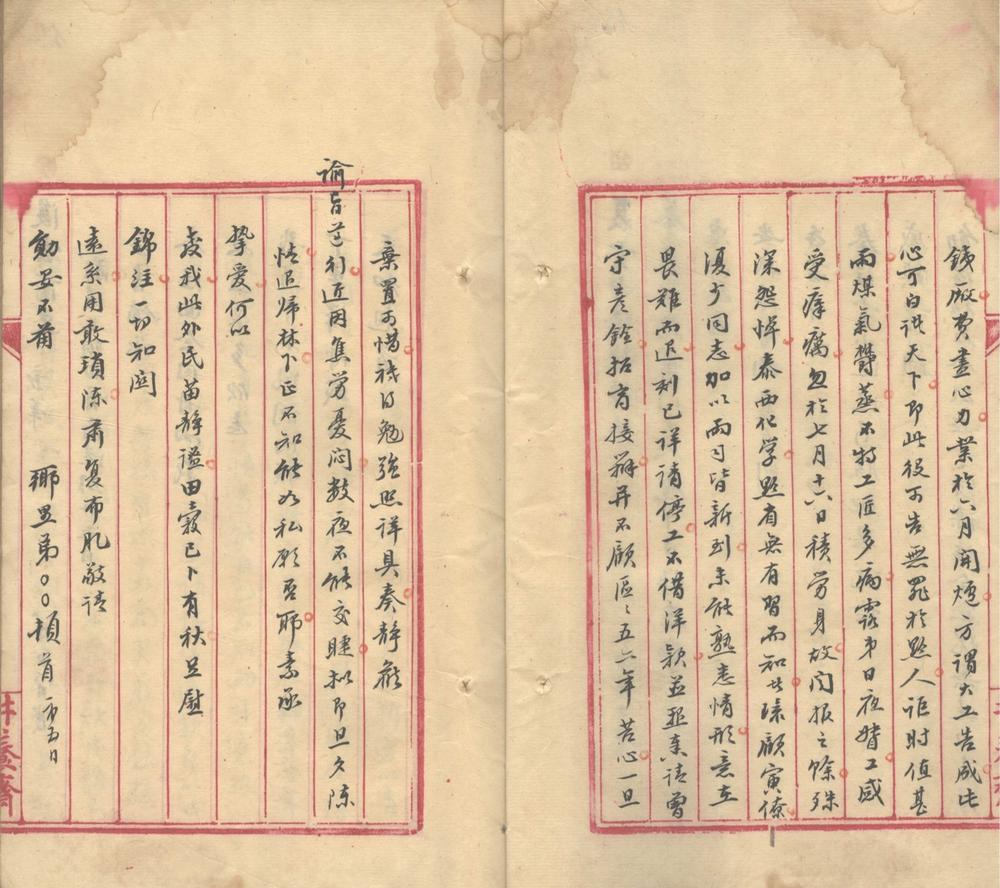 鐵廠費盡心力業於六月開爐方謂大工告成此
心可白訴天下即此役可告無罪於黔人詎時值甚
雨煤氣鬱蒸不特工匠多病露弟日夜督工感
受瘴癘忽於七月十六日積勞身故聞報之餘殊
深怨悼泰西化學黔省無有習而知者環顧寅僚
復少同志加以兩司皆新到未能熟悉情形意在
畏難而退刻已詳請停工不借洋款並歪奏請曾
守彥銓招商接辦并不顧區區五六年苦心一旦
棄置可惜祗得勉強照詳具奏靜候
諭旨遵行近因焦勞憂悶數夜不能交睫擬即旦夕陳
情退歸林下正不知能如私願否耶素承
摯愛何以
教我此外民苗靜謐田穀已卜有秋足慰
錦注一切知關
遠系用敢瑣陳肅復布肊敬請
勛安不莆 鄉愚弟〇〇頓首 五日
井養齋